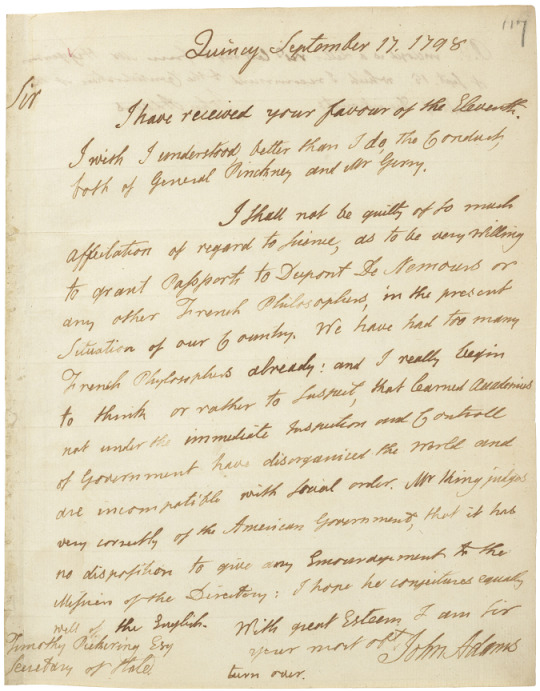 117
Quincy September 17. 1798
Sir
I have received your favour of the Eleventh.
I wish I understood better than I do, the Conduct,
both of General Pinckney and Mr Gerry.
I shall not be guilty of so much
Affectation of regard to Science, as to be very willing
to grant Passports to Dupont De Nemours or
any other French Philosophers, in the present
Situation of our Country. We have had too many
French Phylosophers already: and I really begin
to think or rather to suspect, that learned Academies
not under the immediate Inspection and Controll
of Government have disorganised the World and
are incompatible with social order. Mr King judges
very correctly of the American Government, that it has
no disposition to give any Encouragement to the
Mission of the Directory: I hope he conjectures equally
well of the English. With great Esteem I am Sir
Timothy Pickering Esq your most obt John Adams
Secretary of State
turn over.